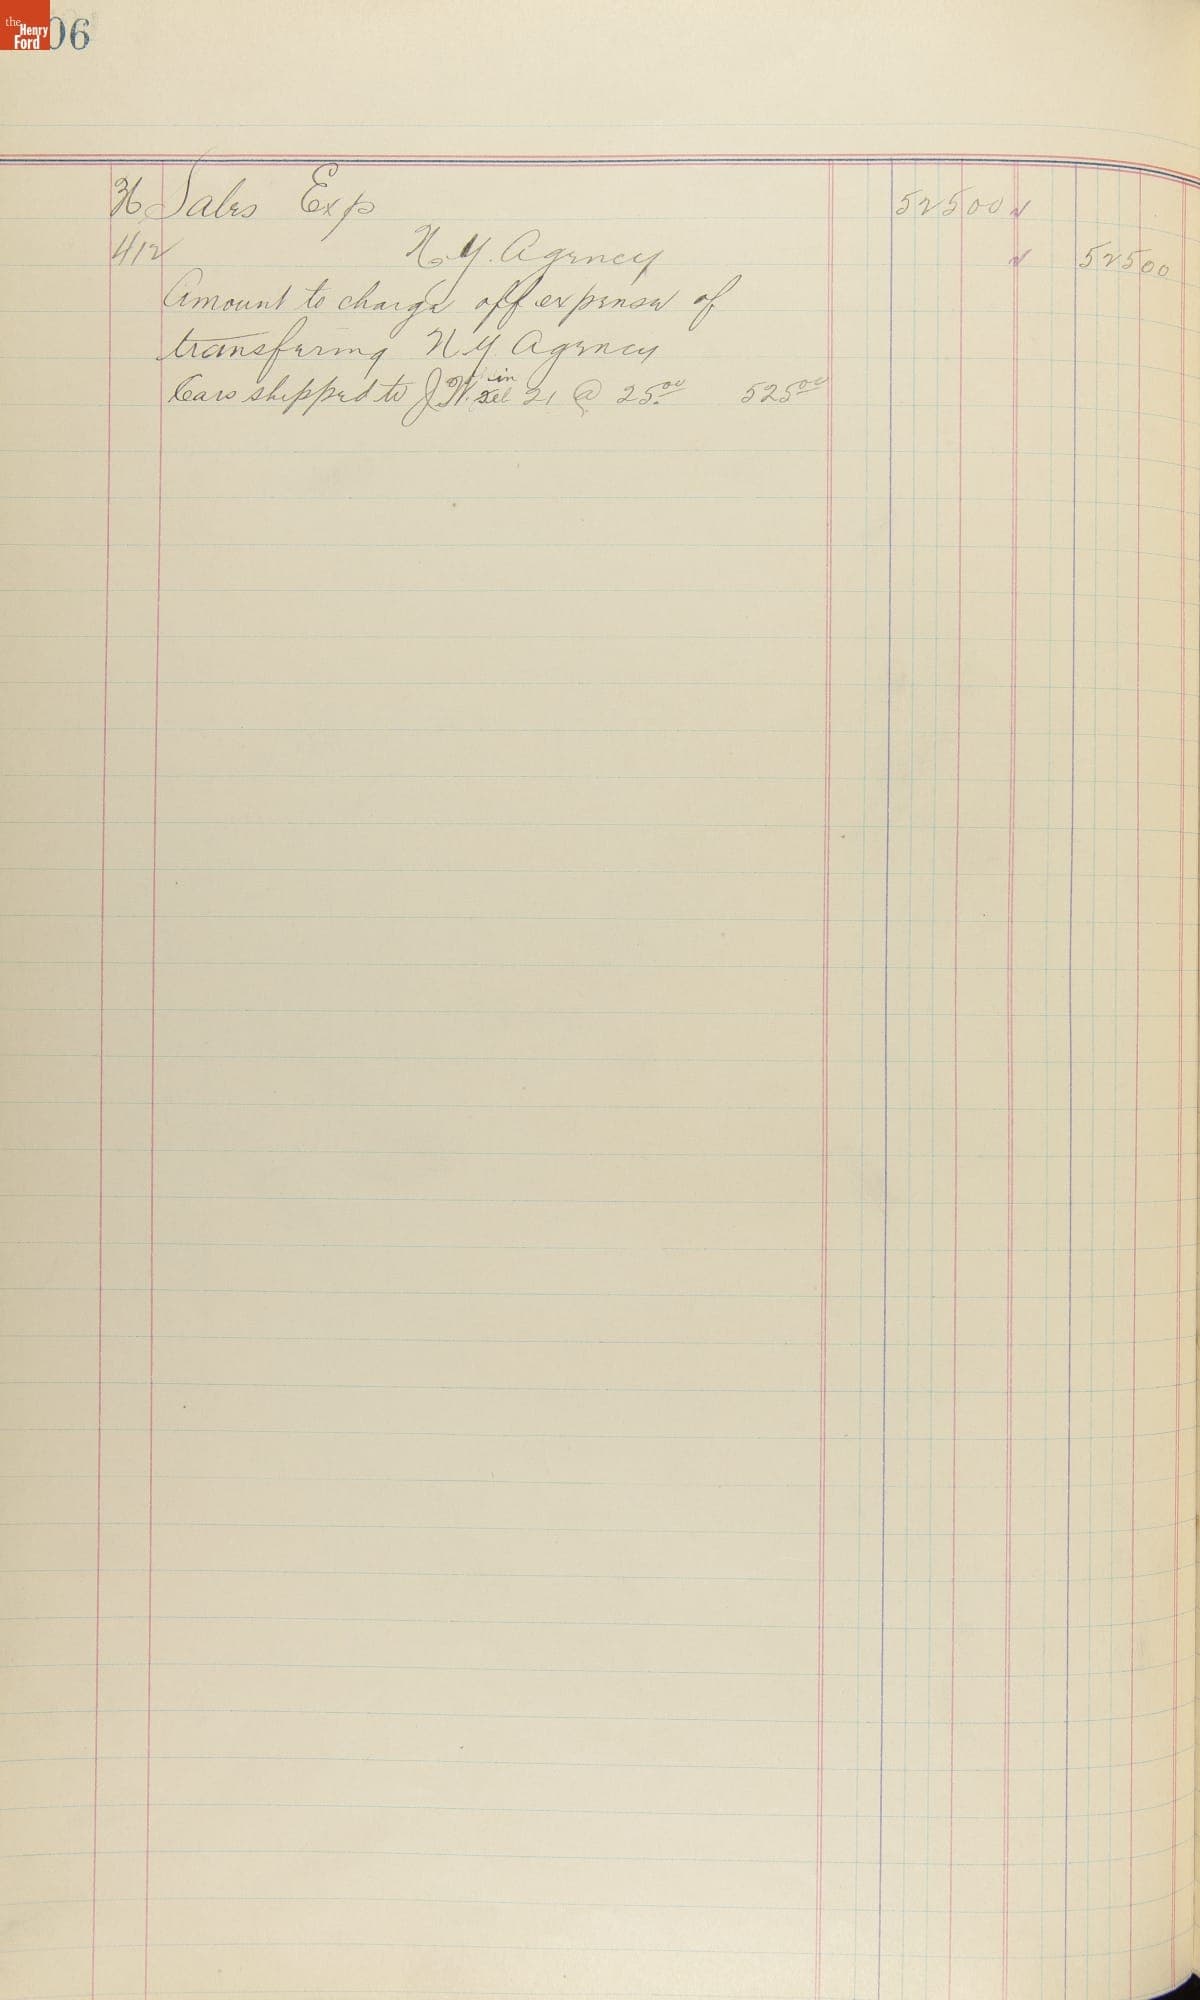 the Henry Ford
06
36 Sales Exp 525 00
412 N.Y. Agency 525 00
Amount to charge off expense of
transfering N.Y. Agency
Cars shipped to J.W. in 21 @ 25.00 525 00